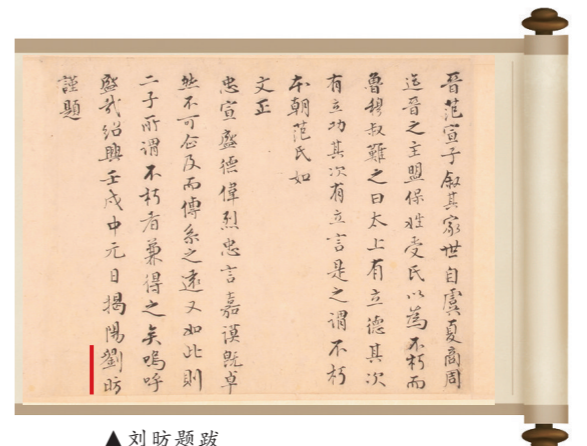 晉范宣子叙其家世自虞夏商周
迄晉之主盟保姓受氏以為不朽而
魯穆叔難之曰太上有立德其次
有立功其次有立言是之謂不朽
本朝范氏如
文正
忠宣盛德偉烈忠言嘉謨既卓
然不可企及而傳系之遠又如此則
二子所謂不朽者兼得之矣嗚呼
盛哉紹興壬戌中元日揭陽劉昉
謹題
▲刘昉题跋